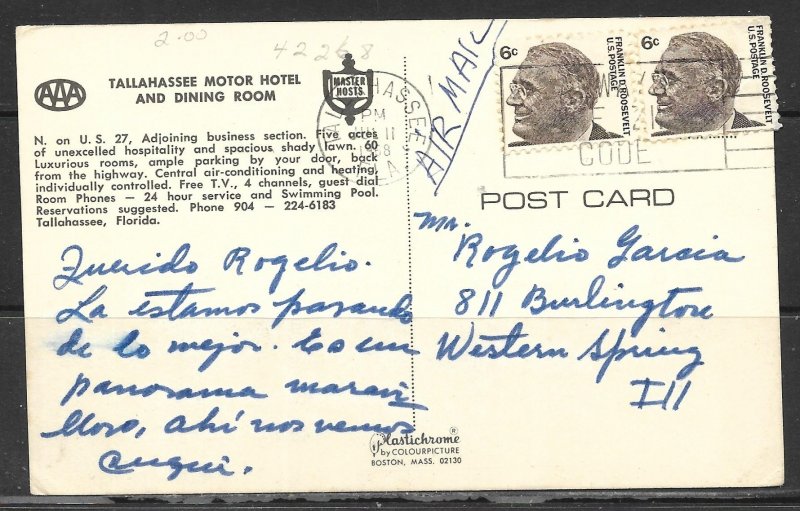 2.00
42268
AAA
TALLAHASSEE MOTOR HOTEL
AND DINING ROOM
MASTER
HOSTS
N. on U. S. 27, Adjoining business section. Five acres
of unexcelled hospitality and spacious shady lawn. 60
Luxurious rooms, ample parking by your door, back
from the highway. Central air-conditioning and heating,
individually controlled. Free T.V., 4 channels, guest dial
Room Phones — 24 hour service and Swimming Pool.
Reservations suggested. Phone 904 — 224-6183
Tallahassee, Florida.
Querido Rogelio.
La estamos pasando
de lo mejor. Es un
panorama maravi
lloso, ahí nos vemos
TALLAHASSEE
PM
11
1968
AIR MAIL
6c
FRANKLIN D. ROOSEVELT
U.S. POSTAGE
6c
FRANKLIN D. ROOSEVELT
U.S. POSTAGE
CODE
POST CARD
Mr.
Rogelio Garcia
811 Burlington
Western Spring
Ill
Plastichrome®
by COLOURPICTURE
BOSTON, MASS. 02130